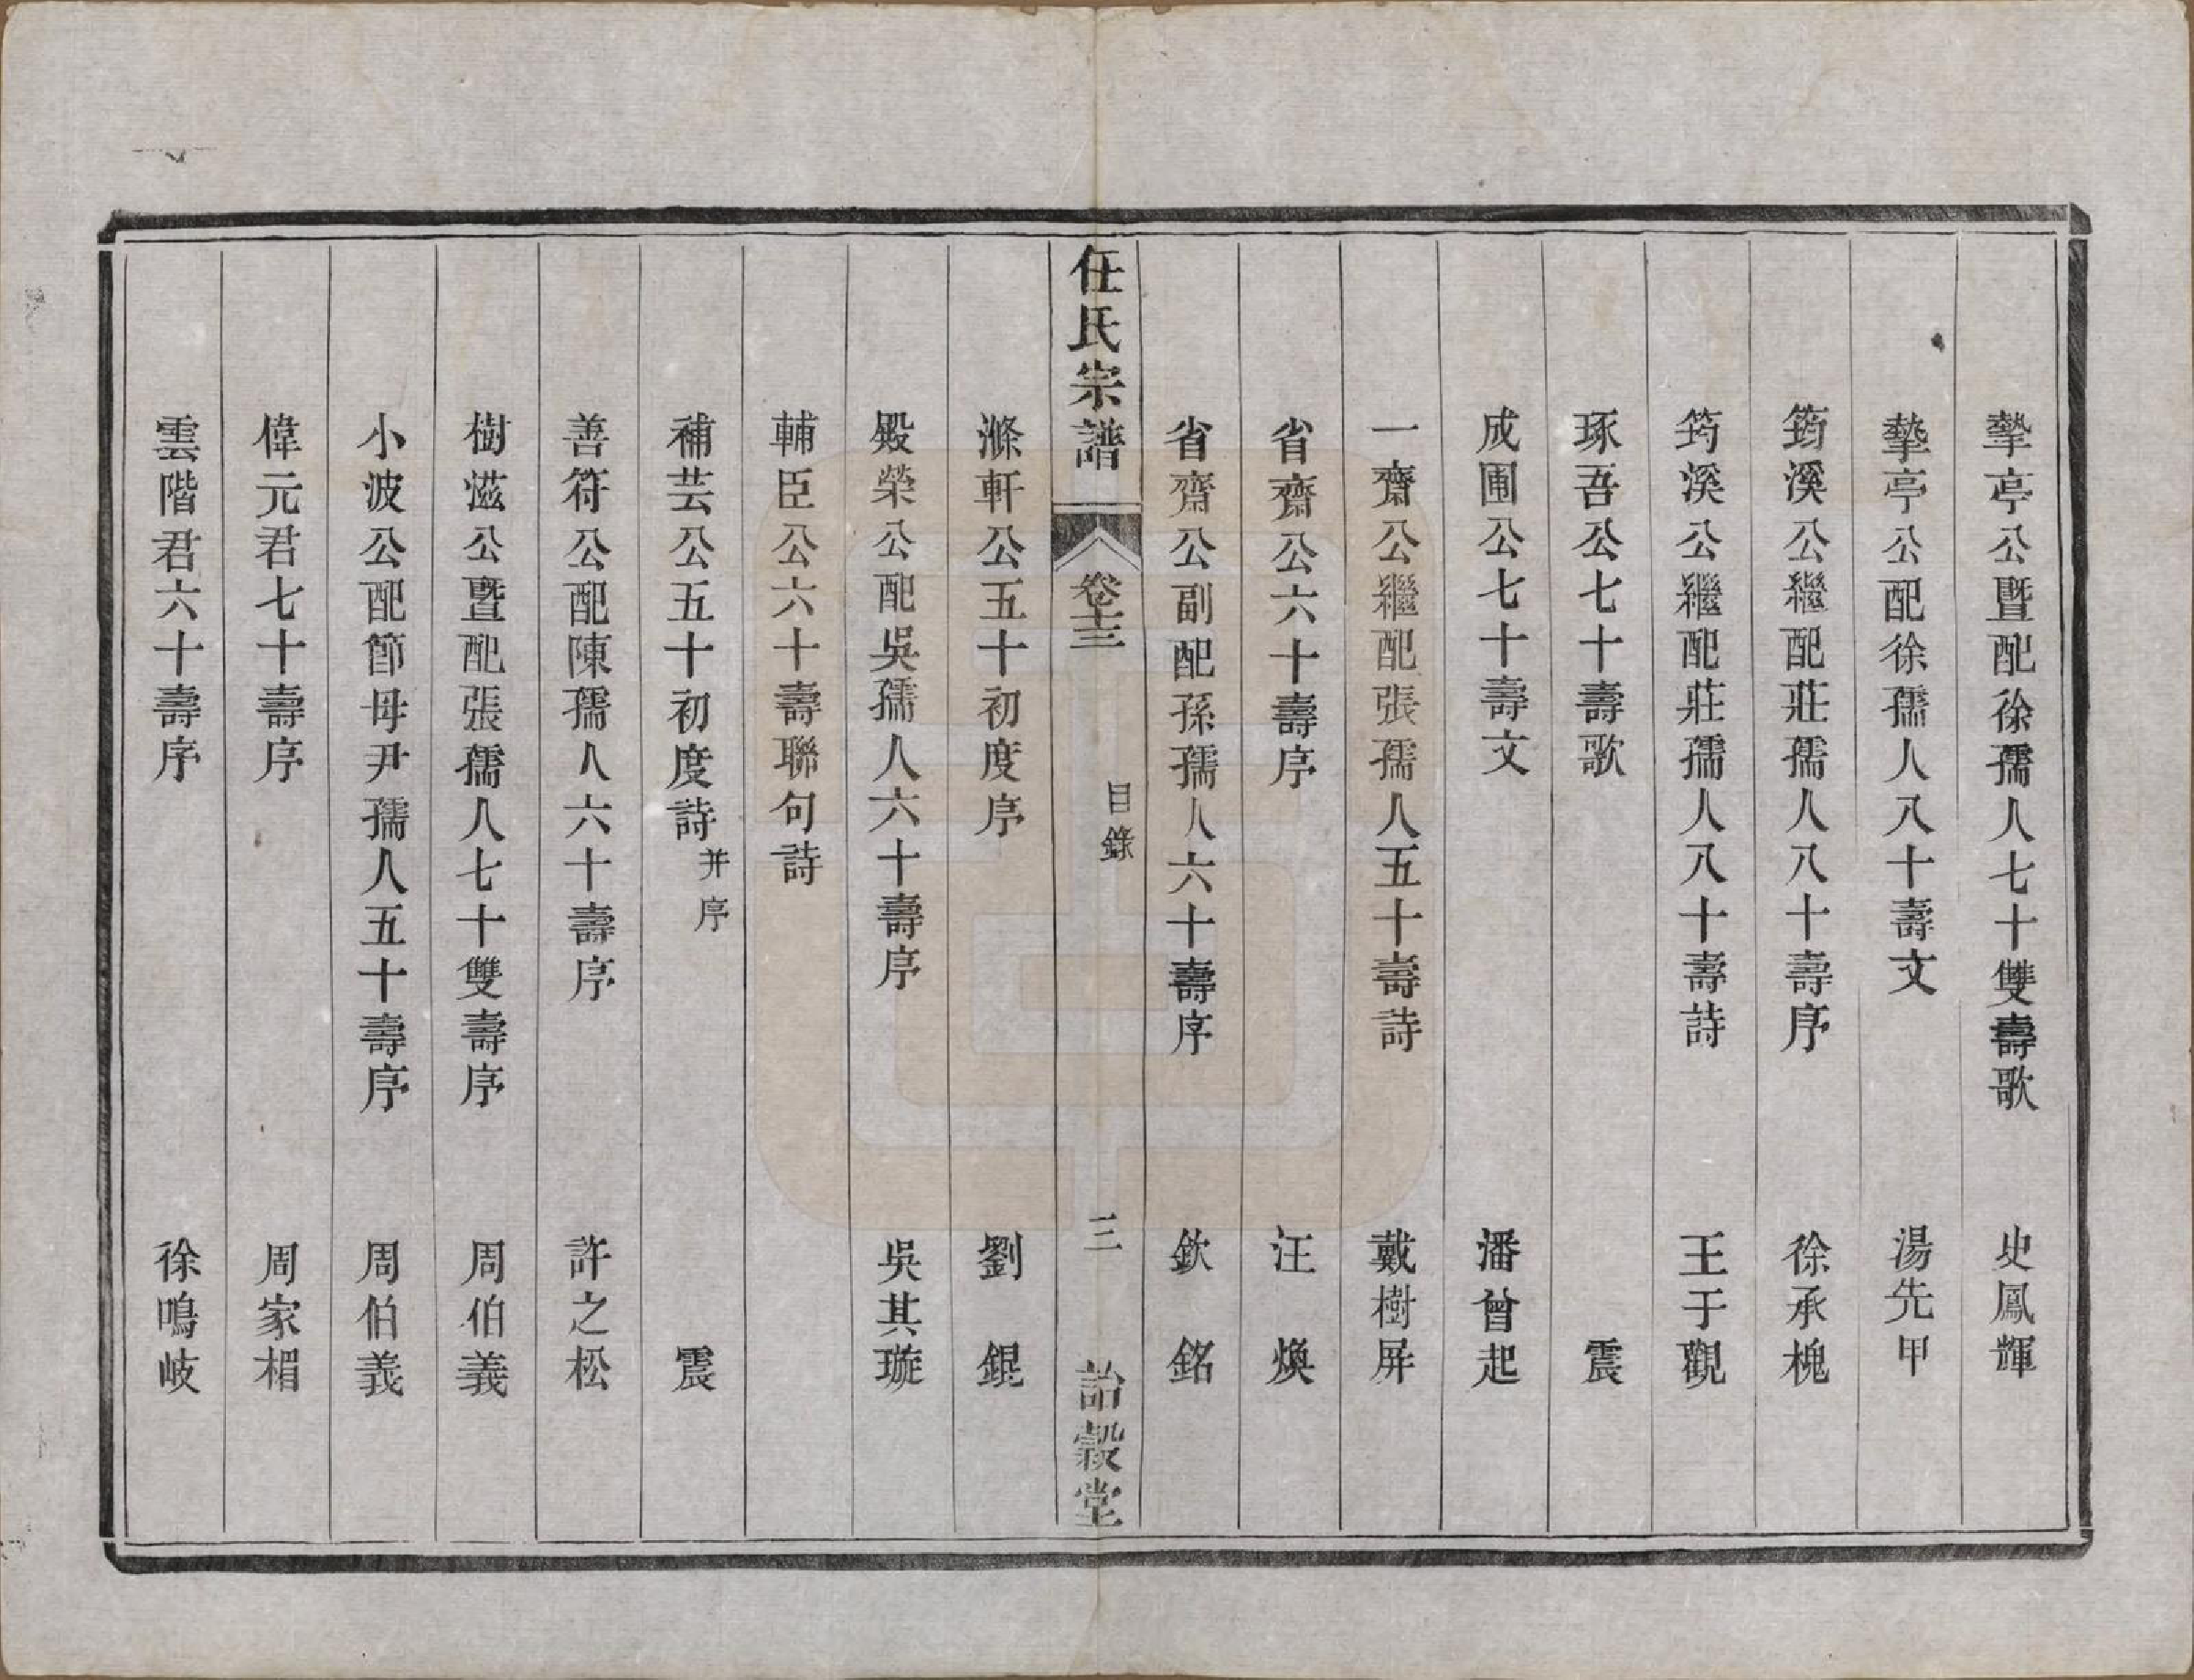 摯亭公暨配徐孺人七十雙壽歌 史鳳輝
摯亭公配徐孺人八十壽文 湯先甲
筠溪公繼配莊孺人八十壽序 徐承槐
筠溪公繼配莊孺人八十壽詩 王于觀
琢吾公七十壽歌 震
成圃公七十壽文 潘曾起
一齋公繼配張孺人五十壽詩 戴樹屏
省齋公六十壽序 汪煥
省齋公副配孫孺人六十壽序 欽銘
任氏宗譜 卷十三 目錄 三 詒穀堂
滌軒公五十初度序 劉錕
殿榮公配吳孺人六十壽序 吳其璇
輔臣公六十壽聯句詩
補芸公五十初度詩并序 震
善符公配陳孺人六十壽序 許之松
樹滋公暨配張孺人七十雙壽序 周伯義
小波公配節母尹孺人五十壽序 周伯義
偉元君七十壽序 周家楣
雲階君六十壽序 徐鳴岐